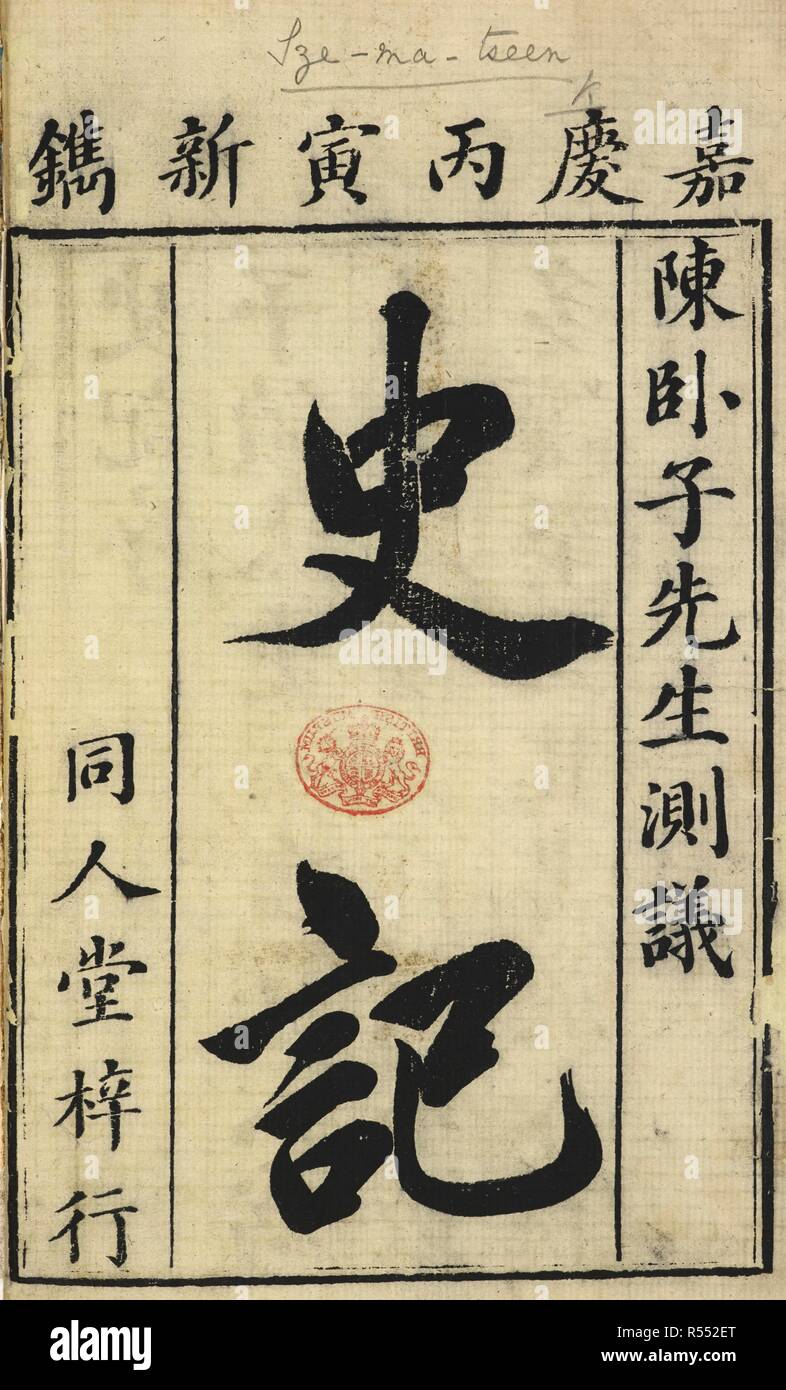 Sze-ma-tseen
嘉慶丙寅新鐫
陳卧子先生測議
史記
同人堂梓行
BRITISH MUSEUM
alamy
alamy
Image ID: R552ET
www.alamy.com